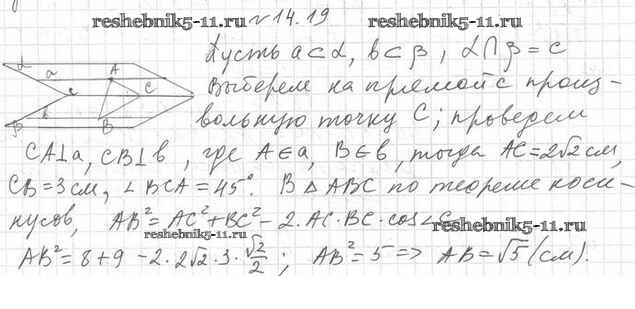 reshebnik5-11.ru №14.19 reshebnik5-11.ru
α a A c C β b B
Пусть a⊂α, b⊂β, α∩β=c
Выберем на прямой c произ-
вольную точку C; проведем
CA⊥a, CB⊥b, где A∈a, B∈b, тогда AC=2√2 см,
CB=3 см, ∠BCA=45°. В △ABC по теореме коси-
нусов, AB²=AC²+BC²-2·AC·BC·cos∠C
reshebnik5-11.ru reshebnik5-11.ru
AB²=8+9-2·2√2·3·√2/2; AB²=5=>AB=√5(см).